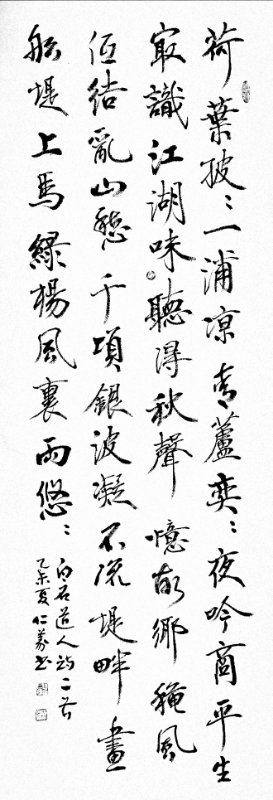 荷葉披〻一浦凉青蘆奕〻夜吟商平生
冣識江湖味聽得秋聲憶故鄉穐風
低結亂山愁千頃銀波凝不流堤畔畫
船堤上馬綠楊風裏兩悠〻
白石道人詩二首
乙未夏仁義書